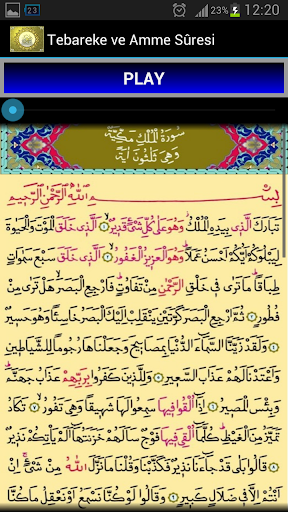 23
23%
12:20
Tebareke ve Amme Sûresi
PLAY
سُورَةُ الْمُلْكِ مَكِّيَّةٌ
وَهِيَ ثَلٰثُونَ اٰيَةً
بِسْــــمِ اللّٰهِ الرَّحْمٰنِ الرَّحِيمِ
تَبَارَكَ الَّذ۪ي بِيَدِهِ الْمُلْكُ وَهُوَ عَلٰى كُلِّ شَيْءٍ قَد۪يرٌۙ ١ اَلَّذ۪ي خَلَقَ الْمَوْتَ وَالْحَيٰوةَ
لِيَبْلُوَكُمْ اَيُّكُمْ اَحْسَنُ عَمَلًاۜ وَهُوَ الْعَز۪يزُ الْغَفُورُۙ ٢ اَلَّذ۪ي خَلَقَ سَبْعَ سَمٰوَاتٍ
طِبَاقًاۜ مَا تَرٰى ف۪ي خَلْقِ الرَّحْمٰنِ مِنْ تَفَاوُتٍۜ فَارْجِعِ الْبَصَرَۙ هَلْ تَرٰى مِنْ
فُطُورٍ ٣ ثُمَّ ارْجِعِ الْبَصَرَ كَرَّتَيْنِ يَنْقَلِبْ اِلَيْكَ الْبَصَرُ خَاسِئًا وَهُوَ حَس۪يرٌ
٤ وَلَقَدْ زَيَّنَّا السَّمَٓاءَ الدُّنْيَا بِمَصَاب۪يحَ وَجَعَلْنَاهَا رُجُومًا لِلشَّيَاط۪ينِ
وَاَعْتَدْنَا لَهُمْ عَذَابَ السَّع۪يرِ ٥ وَلِلَّذ۪ينَ كَفَرُوا بِرَبِّهِمْ عَذَابُ جَهَنَّمَۜ
وَبِئْسَ الْمَص۪يرُ ٦ اِذَٓا اُلْقُوا ف۪يهَا سَمِعُوا لَهَا شَه۪يقًا وَهِيَ تَفُورُۙ ٧ تَكَادُ
تَمَيَّزُ مِنَ الْغَيْظِۜ كُلَّمَٓا اُلْقِيَ ف۪يهَا فَوْجٌ سَاَلَهُمْ خَزَنَتُهَٓا اَلَمْ يَأْتِكُمْ نَذ۪يرٌ
٨ قَالُوا بَلٰى قَدْ جَٓاءَنَا نَذ۪يرٌ فَكَذَّبْنَا وَقُلْنَا مَا نَزَّلَ اللّٰهُ مِنْ شَيْءٍۚ اِنْ
اَنْتُمْ اِلَّا ف۪ي ضَلَالٍ كَب۪يرٍ ٩ وَقَالُوا لَوْ كُنَّا نَسْمَعُ اَوْ نَعْقِلُ مَا كُنَّا